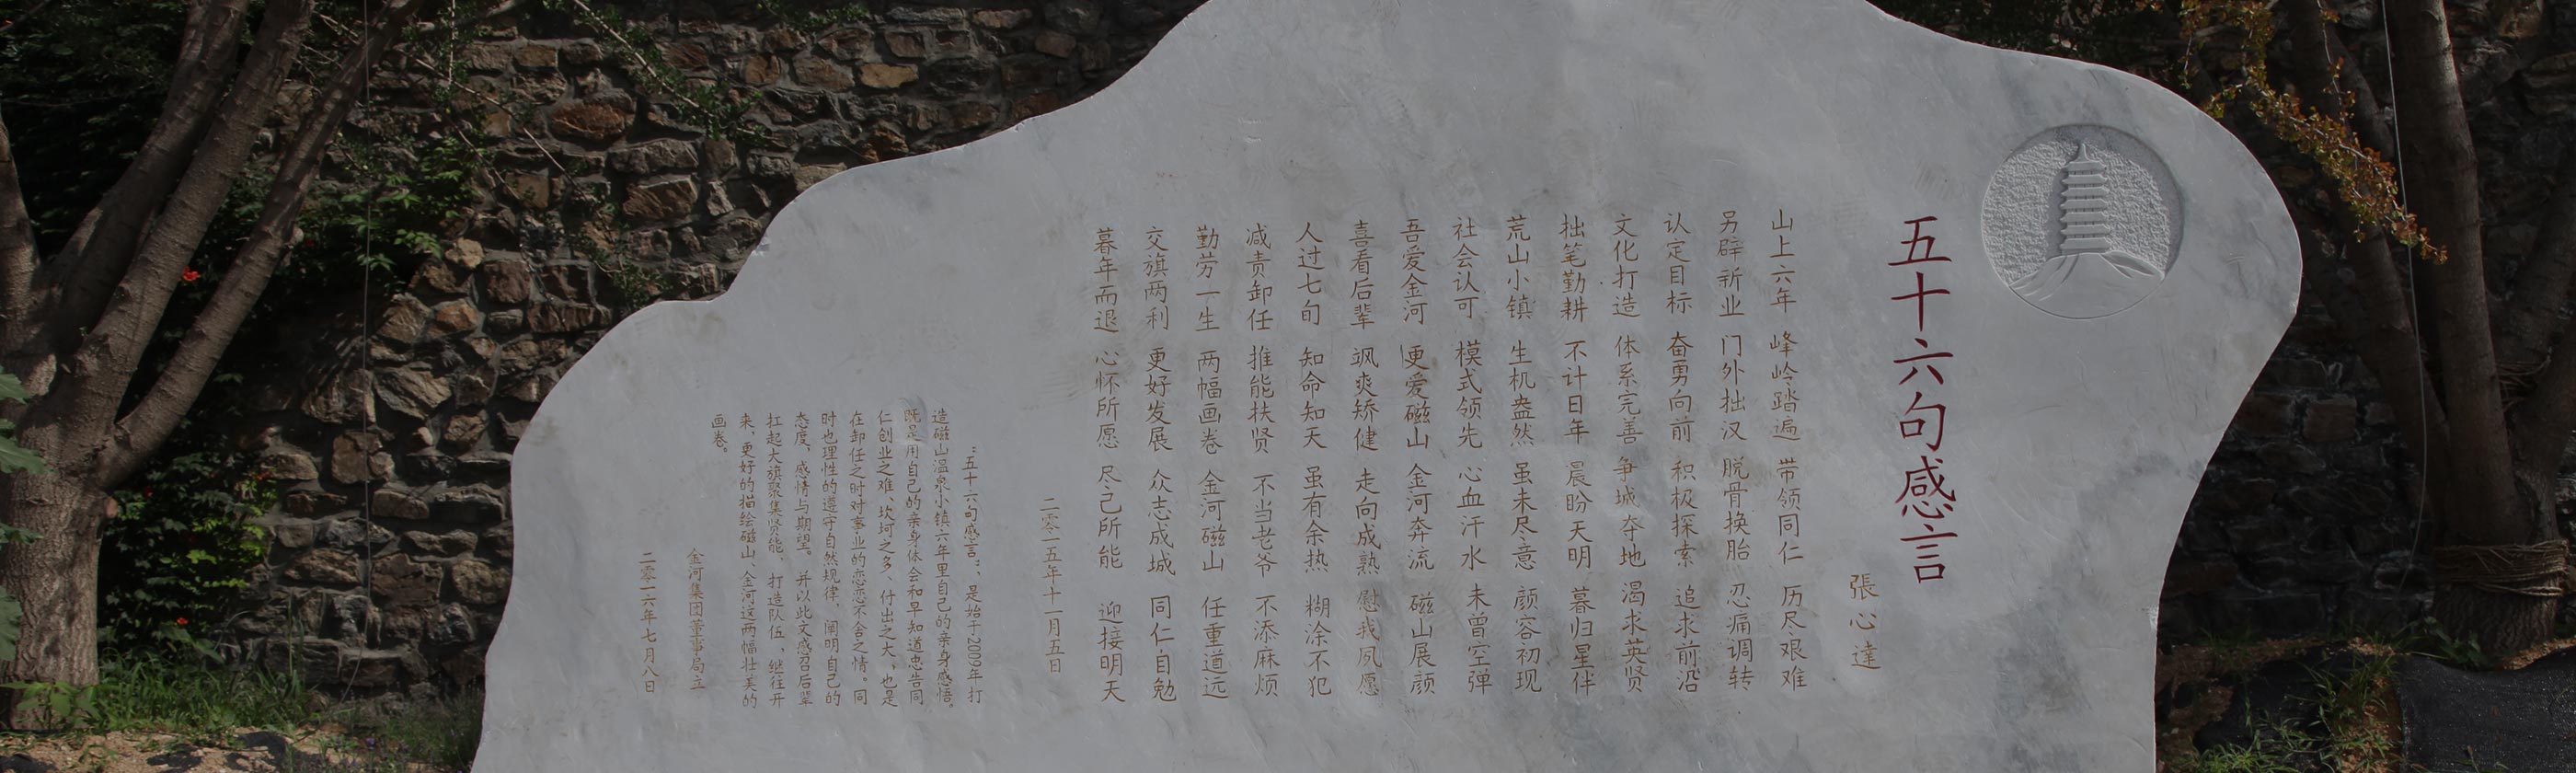 五十六句感言
張心達
山上六年 峰岭踏遍 带领同仁 历尽艰难
另辟新业 门外拙汉 脱骨换胎 忍痛调转
认定目标 奋勇向前 积极探索 追求前沿
文化打造 体系完善 争城夺地 渴求英贤
拙笔勤耕 不计日年 晨盼天明 暮归星伴
荒山小镇 生机盎然 虽未尽意 颜容初现
社会认可 模式领先 心血汗水 未曾空弹
吾爱金河 更爱磁山 金河奔流 磁山展颜
喜看后辈 飒爽矫健 走向成熟 慰我夙愿
人过七旬 知命知天 虽有余热 糊涂不犯
减责卸任 推能扶贤 不当老爷 不添麻烦
勤劳一生 两幅画卷 金河磁山 任重道远
交旗两利 更好发展 众志成城 同仁自勉
暮年而退 心怀所愿 尽己所能 迎接明天
二零一五年十一月五日
“五十六句感言”、是始于2009年打
造磁山温泉小镇六年里自己的亲身感悟。
既是用自己的亲身体会和早知道忠告同
仁创业之难、坎坷之多、付出之大，也是
在卸任之时对事业的恋恋不舍之情。同
时也理性的遵守自然规律、阐明自己的
态度，感情与期望。并以此文感召后辈
扛起大旗聚集贤能，打造队伍，继往开
来，更好的描绘磁山、金河这两幅壮美的
画卷。
金河集团董事局立
二零一六年七月八日